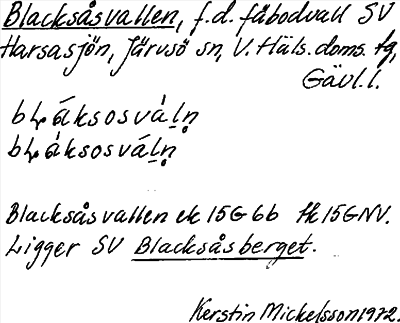 Blacksåsvallen, f.d. fäbodvall SV
Harsasjön, Järvsö sn, V. Häls. doms. tg,
Gävl. l.
Blacksåsvallen ek 15G 6b tk 15G NV.
Ligger SV Blacksåsberget.
Kerstin Mickelsson 1972.